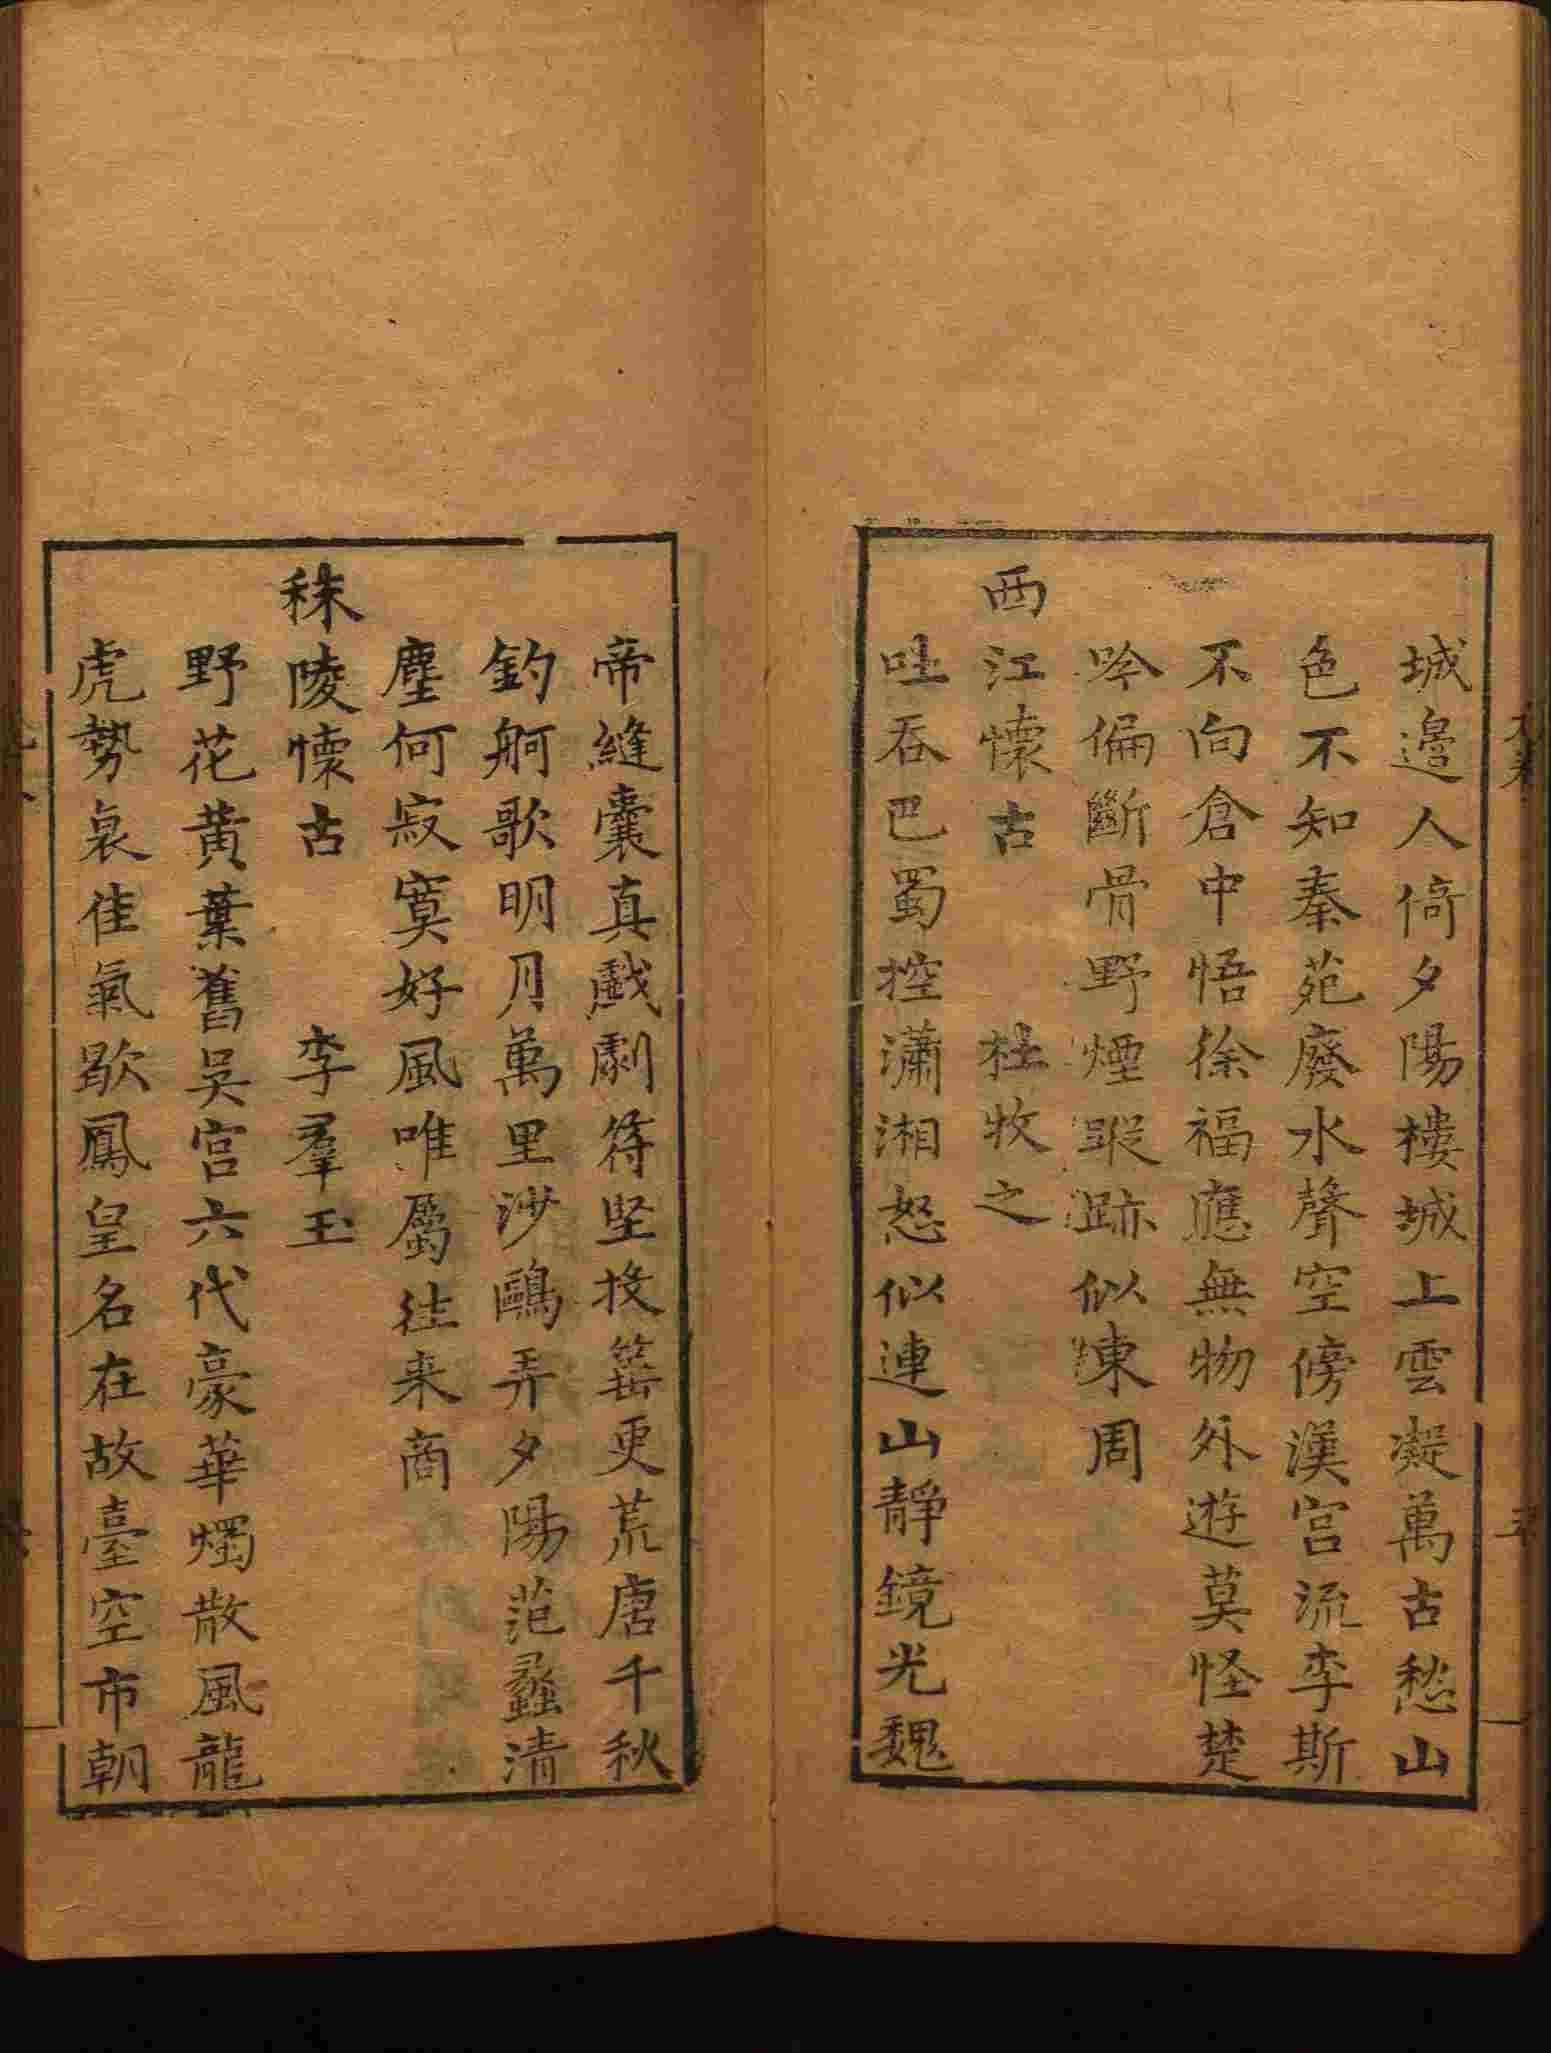 城邊人倚夕陽樓城上雲凝萬古愁山
色不知秦苑廢水聲空傍漢宮流李斯
不向倉中悟徐福應無物外遊莫怪楚
吟偏斷骨野煙蹤跡似東周
西江懷古 杜牧之
吐吞巴蜀控瀟湘怒似連山靜鏡光魏
帝縫囊真戲劇符坚投箠更荒唐千秋
釣舸歌明月萬里沙鷗弄夕陽范蠡清
塵何寂寞好風唯屬往来商
秣陵懷古 李羣玉
野花黄葉舊吴宮六代豪華燭散風龍
虎勢衰佳氣歇鳳皇名在故臺空市朝